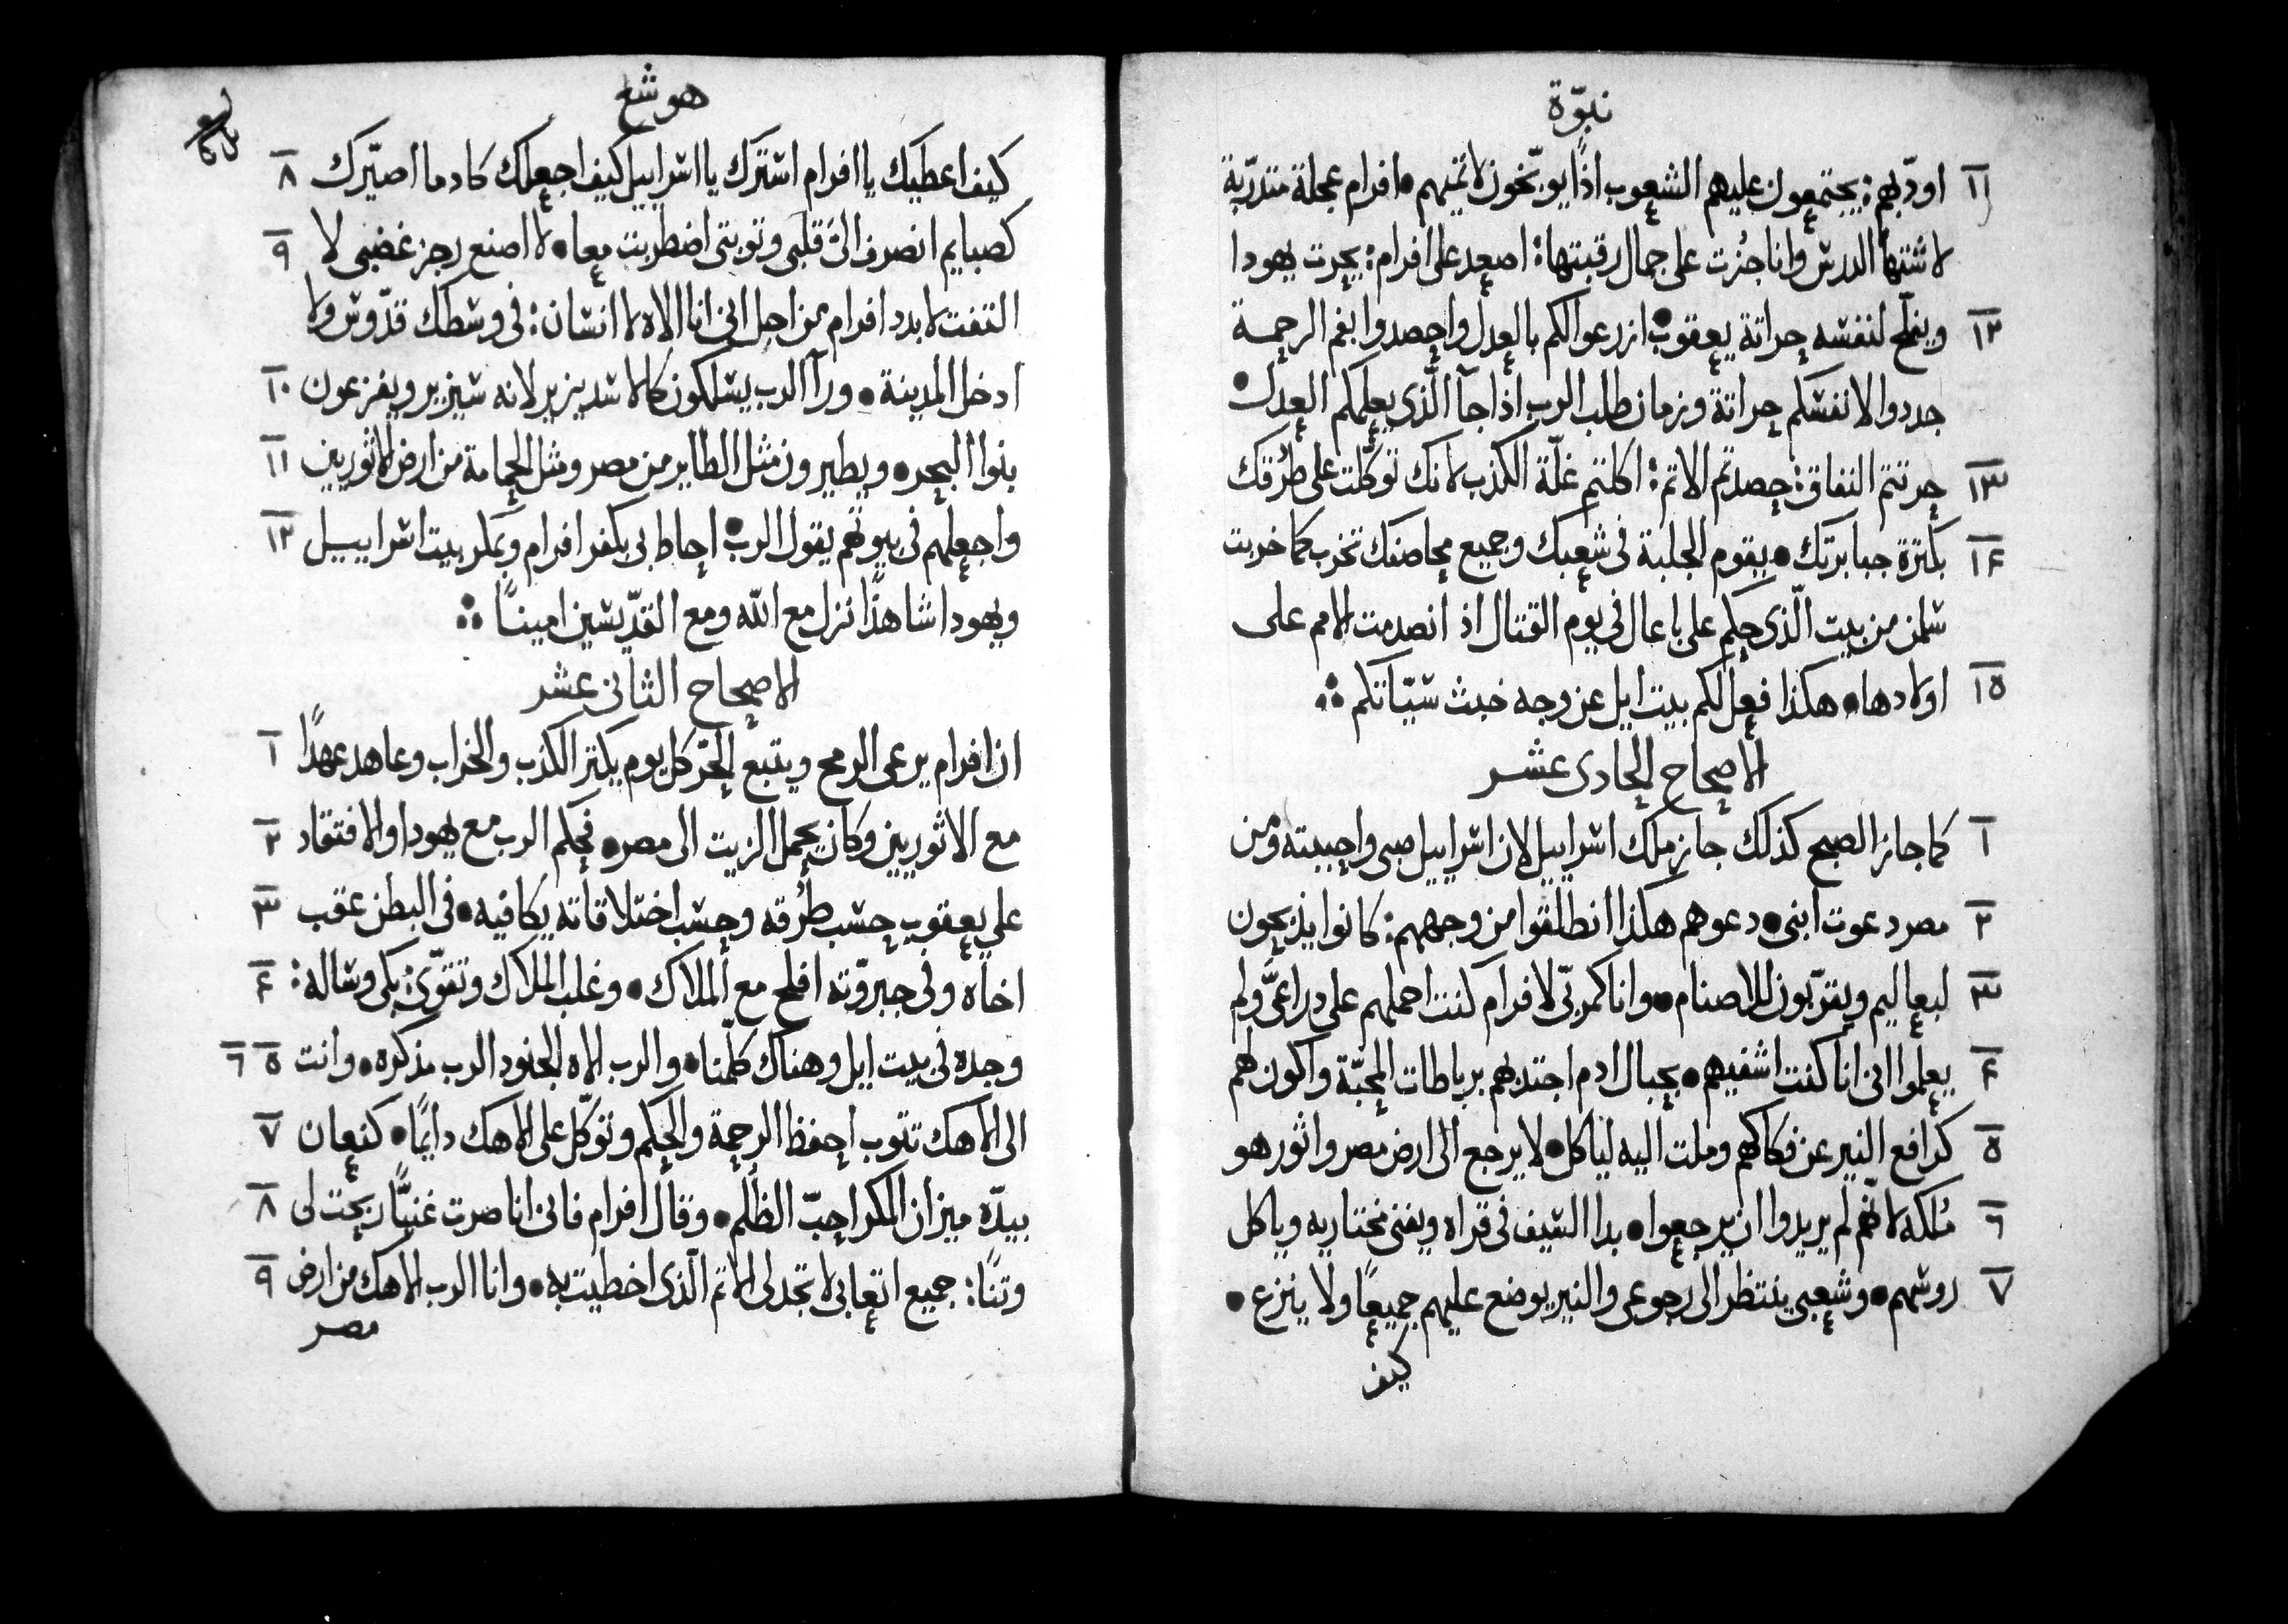 نبوّة
١١ اودّبهم: يجتمعون عليهم الشعوب اذًا يوبّخون لاثميهم • افرام عجلة متدرّبة
لاشتهآ الدرس وانا جُزت على جمال رقبتها: اصعد على افرام: يحرث يهودا
١٢ ويفلّح لنفسه حراثة يعقوب • ازرعوا لكم بالعدل واحصدوا بفم الرحمة
جددوا لانفسكم حراثة وزمان طلب الرب اذا جآ الّذى يعلمكم العدل •
١٣ حرثتم النفاق: حصدتم الاثم: اكلتم غلّة الكذب لانك توكّلت على طُرُقك
١٤ بكثرة جبابرتك • يقوم الجلبة فى شعبك وجميع محاصنك تخرب كما خربت
شلمن من بيت الّذى حكم على باعال فى يوم القتال اذ انصدمت الامم على
١٥ اولادها • هكذا فعل لكم بيت ايل عن وجه خبث سيّاتكم ؞
الاصحاح الحادى عشر
١ كما جاز الصبح كذلك جاز ملك اسراييل لان اسراييل صبى واحببته ومن
٢ مصر دعوت ابنى • دعوهم هكذا انطلقوا من وجههم: كانوا يذبحون
٣ لبعاليم ويقرّبون للاصنام • وانا كمربّى لافرام كنت احملهم على دراعىّ ولم
٤ يعلموا انى انا كنت اشفيهم • بحبال ادم اجتدبهم برباطات المحبّة واكون لهم
٥ كرافع النير عن فكاكهم وملت اليه لياكل • لا يرجع الى ارض مصر واثور هو
٦ مُلكه لانّهم لم يريدوا ان يرجعوا • بدا السيف فى قراه ويفنى مختاريه وياكل
٧ روسهم • وشعبى ينتظر الى رجوعى والنير يوضع عليهم جميعًا ولا ينزع •
كيف
هوشع
كيف اعطيك يا افرام استرك يا اسراييل كيف اجعلك كادما اصيّرك ٨
كصبايم انصرف الىّ قلبى وتوبتى اضطربت معا • لا اصنع رجز غضبى لا ٩
التفت لابدد افرام من اجل انى انا الاه لا انسان: فى وسطك قدّوس ولا
ادخل المدينة • ورآ الرب يسلكون كالاسد يزير لانه سيزير ويفزعون ١٠
بنوا البحر • ويطيرون مثل الطاير من مصر ومثل الحمامة من ارض الاثوريين ١١
واجعلهم فى بيوتهم يقول الرب • احاط بى بكفر افرام وبمكر بيت اسراييل ١٢
ويهودا شاهدًا نزل مع اللّه ومع القدّيسين امينًا ؞
الاصحاح الثانى عشر
ان افرام يرعى الرمح ويتبع الحَرّ كل يوم يكثر الكذب والخراب وعاهد عهدًا ١
مع الاثوريين وكان يحمل الزيت الى مصر • فحكم الرب مع يهودا والافتقاد ٢
على يعقوب حسب طُرُقه وحسب اختلاقاته يكافيه • فى البطن عقب ٣
اخاه وفى جبروّته افلح مع الملاك • وغلب الملاك وتقوّى: بكى وساله: ٤
وجده فى بيت ايل وهناك كلّمنا • والرب الاه الجنود الرب مذكره • وانت ٥ ٦
الى الاهك تتوب احفظ الرحمة والحكم وتوكّل على الاهك دايمًا • كنعان ٧
بيدّه ميزان المكر احبّ الظُلم • وقال افرام فانى انا صرت غنيًّا ربحت لى ٨
وثنًا: جميع اتعابى لا تجد لى الاثم الّذى اخطيت به • وانا الرب الاهك من ارض ٩
مصر